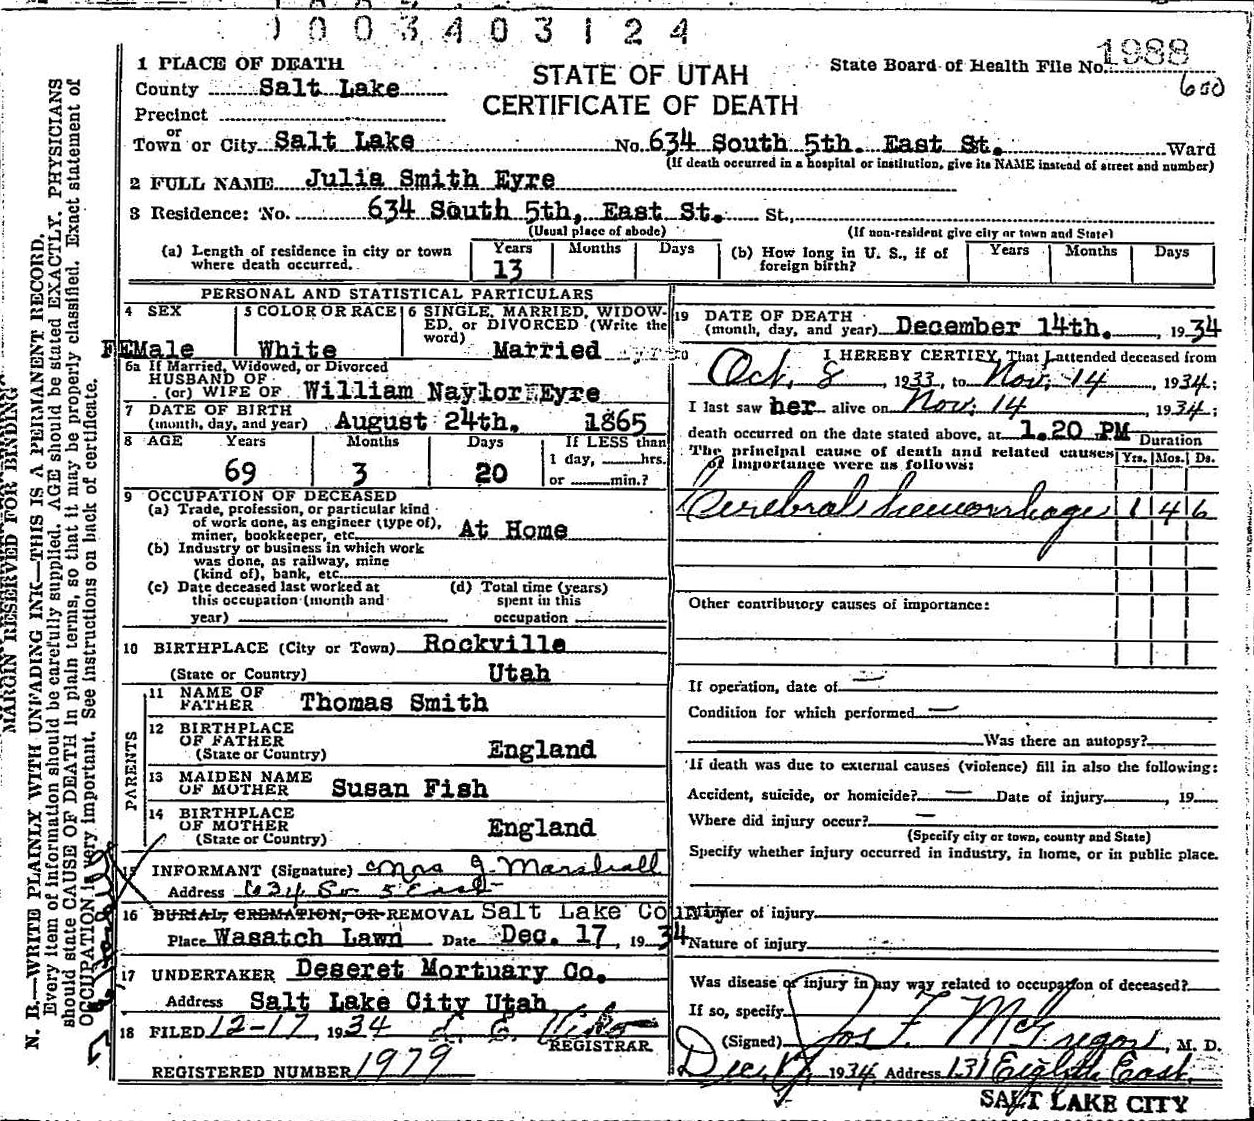 1003403124
1 PLACE OF DEATH
STATE OF UTAH
CERTIFICATE OF DEATH
State Board of Health File No. 1988
600
County Salt Lake
Precinct
or
Town or City Salt Lake No. 634 South 5th. East St. Ward
(If death occurred in a hospital or institution, give its NAME instead of street and number)
2 FULL NAME Julia Smith Eyre
3 Residence: No. 634 South 5th, East St. St.,
(Usual place of abode) (If non-resident give city or town and State)
(a) Length of residence in city or town where death occurred. Years 13 Months Days
(b) How long in U. S., if of foreign birth? Years Months Days
PERSONAL AND STATISTICAL PARTICULARS
4 SEX FEMale
5 COLOR OR RACE White
6 SINGLE, MARRIED, WIDOWED, or DIVORCED (Write the word) Married
6a If Married, Widowed, or Divorced
HUSBAND OF
(or) WIFE OF William Naylor Eyre
7 DATE OF BIRTH
(month, day, and year) August 24th. 1865
8 AGE Years 69 Months 3 Days 20 If LESS than 1 day, hrs. or min.?
9 OCCUPATION OF DECEASED
(a) Trade, profession, or particular kind
of work done, as engineer (type of),
miner, bookkeeper, etc. At Home
(b) Industry or business in which work
was done, as railway, mine
(kind of), bank, etc.
(c) Date deceased last worked at this occupation (month and year)
(d) Total time (years) spent in this occupation
10 BIRTHPLACE (City or Town) Rockville
(State or Country) Utah
PARENTS
11 NAME OF FATHER Thomas Smith
12 BIRTHPLACE OF FATHER
(State or Country) England
13 MAIDEN NAME OF MOTHER Susan Fish
14 BIRTHPLACE OF MOTHER
(State or Country) England
15 INFORMANT (Signature) Mrs J. Marshall
Address 634 So 5 East
16 BURIAL, CREMATION, OR REMOVAL Salt Lake County
Place Wasatch Lawn Date Dec. 17, 1934
17 UNDERTAKER Deseret Mortuary Co.
Address Salt Lake City Utah
18 FILED 12-17, 1934
REGISTRAR
REGISTERED NUMBER 1979
19 DATE OF DEATH
(month, day, and year) December 14th. , 1934
20 I HEREBY CERTIFY, That I attended deceased from
Oct. 8, 1933, to Nov. 14, 1934;
I last saw her alive on Nov. 14, 1934;
death occurred on the date stated above, at 1.20 PM
Duration
The principal cause of death and related causes Yrs. Mos. Ds.
of importance were as follows:
Cerebral hemorrhage 1 4 6
Other contributory causes of importance:
If operation, date of —
Condition for which performed —
Was there an autopsy?
If death was due to external causes (violence) fill in also the following:
Accident, suicide, or homicide? — Date of injury , 19
Where did injury occur? —
(Specify city or town, county and State)
Specify whether injury occurred in industry, in home, or in public place.
Manner of injury
Nature of injury
Was disease or injury in any way related to occupation of deceased?
If so, specify
(Signed) Jos F. McGregor, M. D.
Dec. 17, 1934 Address 131 Eighth East.
SALT LAKE CITY
MARGIN RESERVED FOR BINDING
N. B.—WRITE PLAINLY WITH UNFADING INK—THIS IS A PERMANENT RECORD.
Every item of information should be carefully supplied. AGE should be stated EXACTLY. PHYSICIANS
should state CAUSE OF DEATH in plain terms, so that it may be properly classified. Exact statement of
OCCUPATION is very important. See instructions on back of certificate.